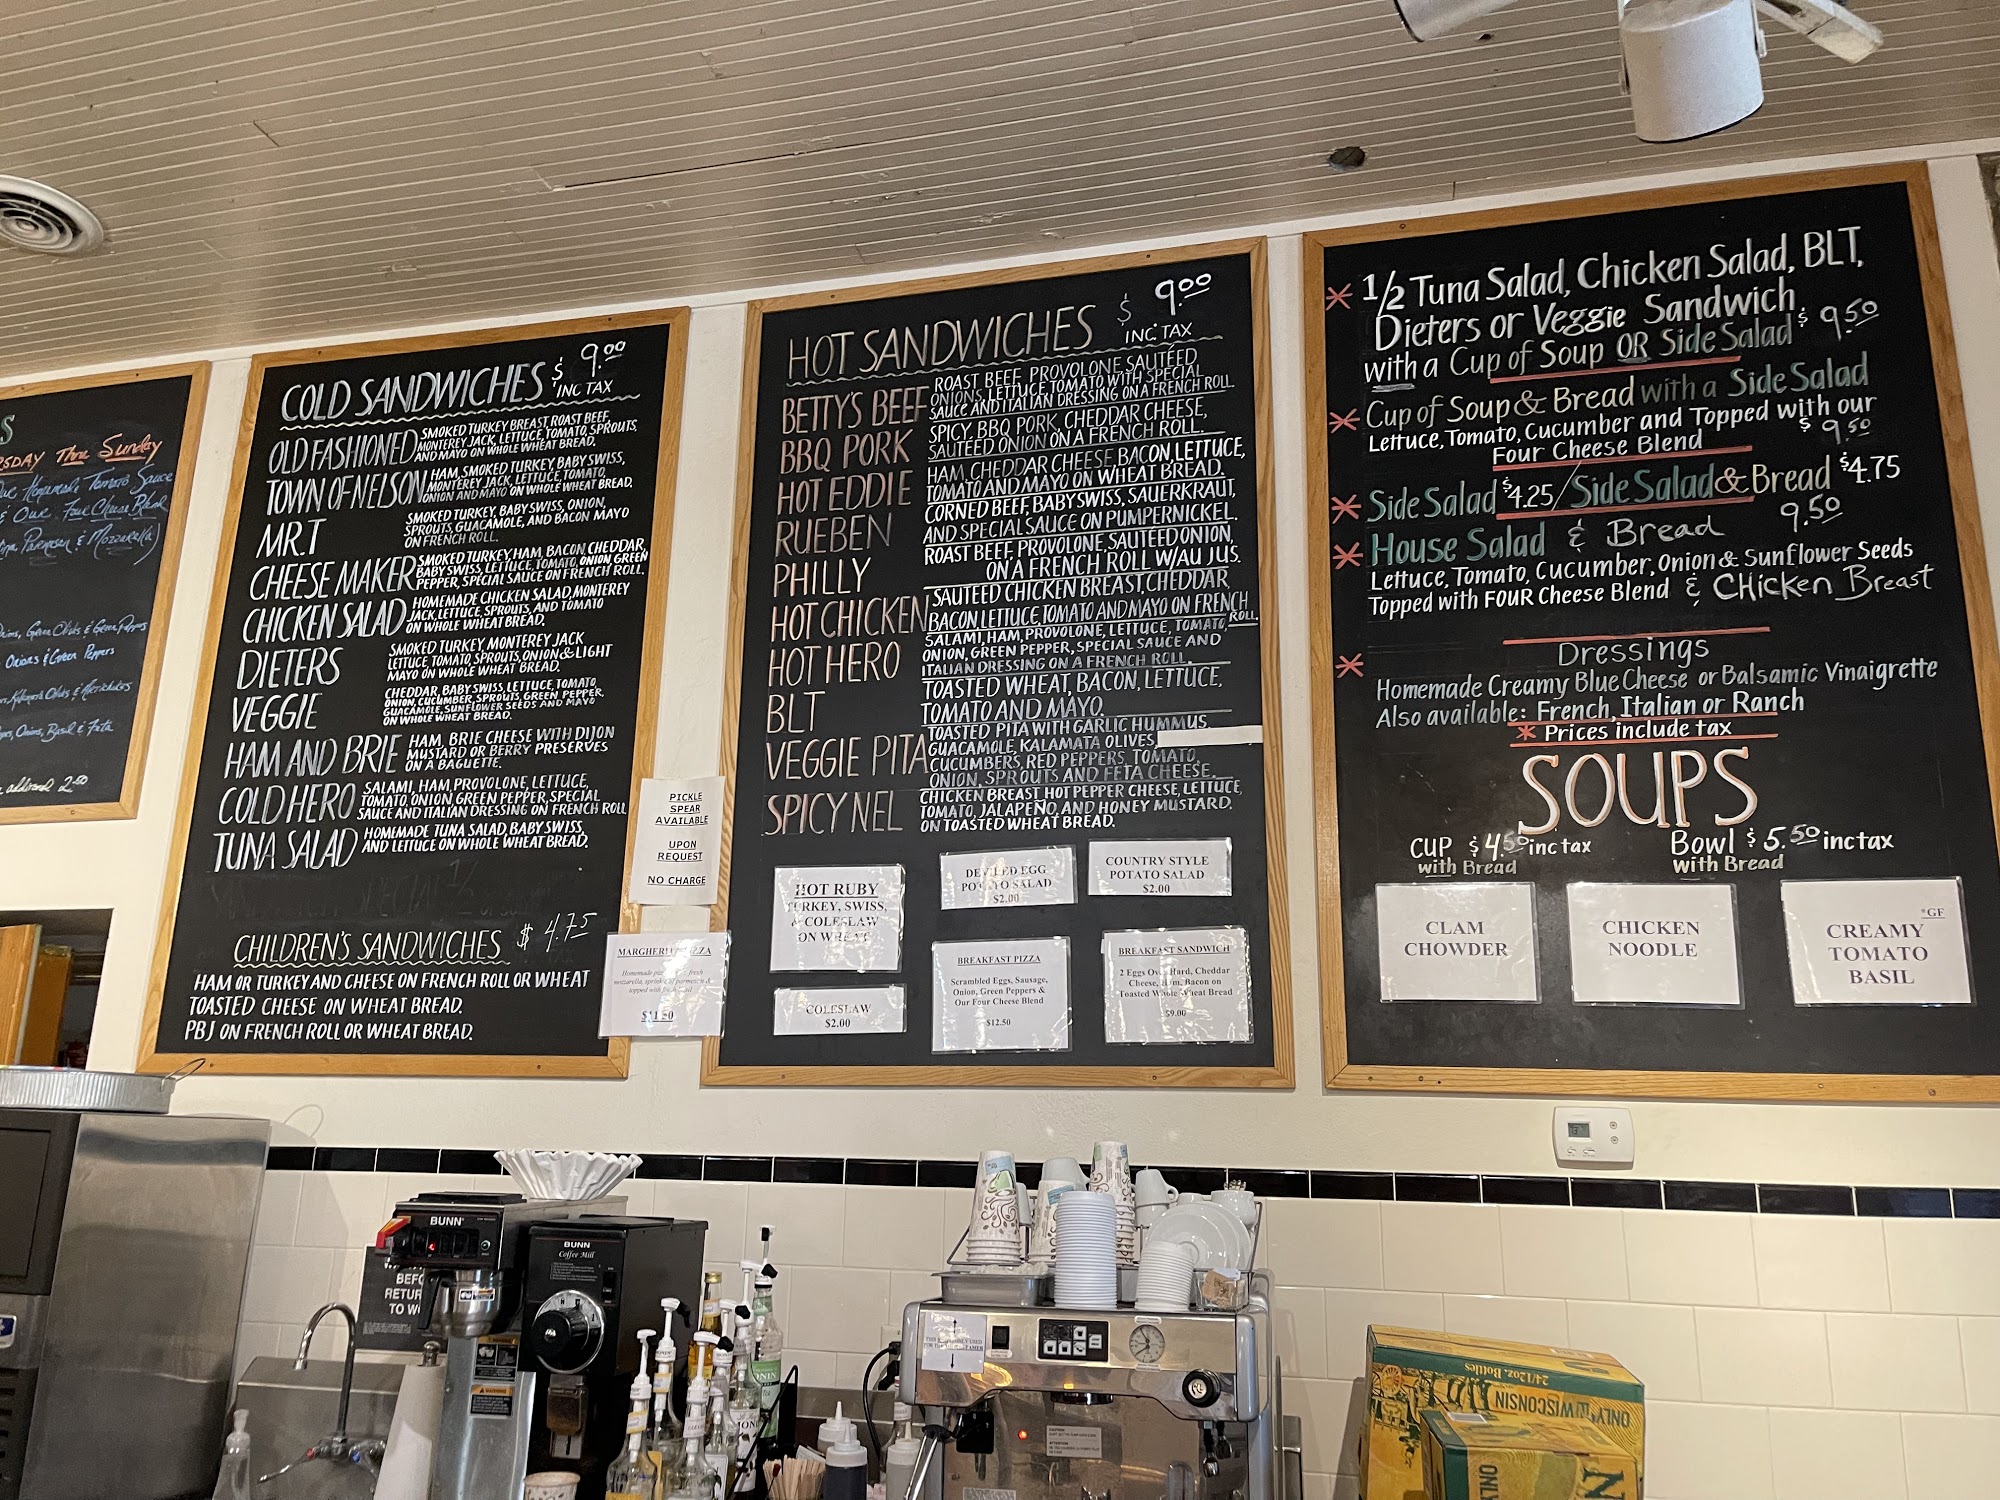 Thru Sunday
Homemade Tomato Sauce
& Our Four Cheese Blend
Parmesan & Mozzarella)
Green Olives & Green Peppers
Onions & Green Peppers
Onions, Basil & Feta
additional 2.50
COLD SANDWICHES $ 9.00
INC TAX
OLD FASHIONED SMOKED TURKEY BREAST, ROAST BEEF,
MONTEREY JACK, LETTUCE, TOMATO, SPROUTS
AND MAYO ON WHOLE WHEAT BREAD.
TOWN OF NELSON HAM, SMOKED TURKEY, BABY SWISS,
MONTEREY JACK, LETTUCE, TOMATO,
ONION AND MAYO ON WHOLE WHEAT BREAD.
MR.T SMOKED TURKEY, BABY SWISS, ONION,
SPROUTS, GUACAMOLE, AND BACON MAYO
ON FRENCH ROLL.
CHEESE MAKER SMOKED TURKEY, HAM, BACON, CHEDDAR,
BABY SWISS, LETTUCE, TOMATO, ONION, GREEN
PEPPER, SPECIAL SAUCE ON FRENCH ROLL.
CHICKEN SALAD HOMEMADE CHICKEN SALAD, MONTEREY
JACK, LETTUCE, SPROUTS, AND TOMATO
ON WHOLE WHEAT BREAD.
DIETERS SMOKED TURKEY, MONTEREY JACK
LETTUCE, TOMATO, SPROUTS, ONION & LIGHT
MAYO ON WHOLE WHEAT BREAD.
VEGGIE CHEDDAR, BABY SWISS, LETTUCE, TOMATO,
ONION, CUCUMBER, SPROUTS, GREEN PEPPER,
GUACAMOLE, SUNFLOWER SEEDS AND MAYO
ON WHOLE WHEAT BREAD.
HAM AND BRIE HAM, BRIE CHEESE WITH DIJON
MUSTARD OR BERRY PRESERVES
ON A BAGUETTE.
COLD HERO SALAMI, HAM, PROVOLONE, LETTUCE,
TOMATO, ONION, GREEN PEPPER, SPECIAL
SAUCE AND ITALIAN DRESSING ON FRENCH ROLL
TUNA SALAD HOMEMADE TUNA SALAD, BABY SWISS,
AND LETTUCE ON WHOLE WHEAT BREAD.
CHILDREN'S SANDWICHES $ 4.75
HAM OR TURKEY AND CHEESE ON FRENCH ROLL OR WHEAT
TOASTED CHEESE ON WHEAT BREAD.
PBJ ON FRENCH ROLL OR WHEAT BREAD.
PICKLE
SPEAR
AVAILABLE
UPON
REQUEST
NO CHARGE
MARGHERITA PIZZA
$11.50
HOT SANDWICHES $ 9.00
INC. TAX
BETTY'S BEEF ROAST BEEF, PROVOLONE, SAUTÉED
ONIONS, LETTUCE, TOMATO WITH SPECIAL
SAUCE AND ITALIAN DRESSING ON A FRENCH ROLL.
BBQ PORK SPICY, BBQ PORK, CHEDDAR CHEESE,
SAUTÉED ONION ON A FRENCH ROLL.
HOT EDDIE HAM, CHEDDAR CHEESE BACON, LETTUCE,
TOMATO AND MAYO ON WHEAT BREAD.
RUEBEN CORNED BEEF, BABY SWISS, SAUERKRAUT,
AND SPECIAL SAUCE ON PUMPERNICKEL.
PHILLY ROAST BEEF, PROVOLONE, SAUTEED ONION,
ON A FRENCH ROLL W/AU JUS.
HOT CHICKEN SAUTEED CHICKEN BREAST, CHEDDAR,
BACON, LETTUCE, TOMATO AND MAYO ON FRENCH ROLL.
HOT HERO SALAMI, HAM, PROVOLONE, LETTUCE, TOMATO,
ONION, GREEN PEPPER, SPECIAL SAUCE AND
ITALIAN DRESSING ON A FRENCH ROLL.
BLT TOASTED WHEAT, BACON, LETTUCE,
TOMATO AND MAYO.
VEGGIE PITA TOASTED PITA WITH GARLIC HUMMUS,
GUACAMOLE, KALAMATA OLIVES,
CUCUMBERS, RED PEPPERS, TOMATO,
ONION, SPROUTS AND FETA CHEESE.
SPICY NEL CHICKEN BREAST HOT PEPPER CHEESE, LETTUCE,
TOMATO, JALAPEÑO, AND HONEY MUSTARD.
ON TOASTED WHEAT BREAD.
HOT RUBY
TURKEY, SWISS,
& COLESLAW
ON WHEAT
COLESLAW
$2.00
DEVILED EGG
POTATO SALAD
$2.00
COUNTRY STYLE
POTATO SALAD
$2.00
BREAKFAST PIZZA
Scrambled Eggs, Sausage,
Onion, Green Peppers &
Our Four Cheese Blend
$12.50
BREAKFAST SANDWICH
2 Eggs Over Hard, Cheddar
Cheese, Ham, Bacon on
Toasted Whole Wheat Bread
$9.00
* 1/2 Tuna Salad, Chicken Salad, BLT,
Dieters or Veggie Sandwich
with a Cup of Soup OR Side Salad $ 9.50
* Cup of Soup & Bread with a Side Salad
Lettuce, Tomato, Cucumber and Topped with our
Four Cheese Blend $ 9.50
* Side Salad $4.25 / Side Salad & Bread $4.75
* House Salad & Bread 9.50
Lettuce, Tomato, Cucumber, Onion & Sunflower Seeds
Topped with FOUR Cheese Blend & CHicken Breast
* Dressings
Homemade Creamy Blue Cheese or Balsamic Vinaigrette
Also available: French, Italian or Ranch
* Prices include tax
SOUPS
CUP $4.50 inc tax
with Bread
Bowl $5.50 inc tax
with Bread
CLAM
CHOWDER
CHICKEN
NOODLE
*GF
CREAMY
TOMATO
BASIL
BUNN
BUNN
Coffee Mill
24/12oz. Bottles
ONLY IN WISCONSIN